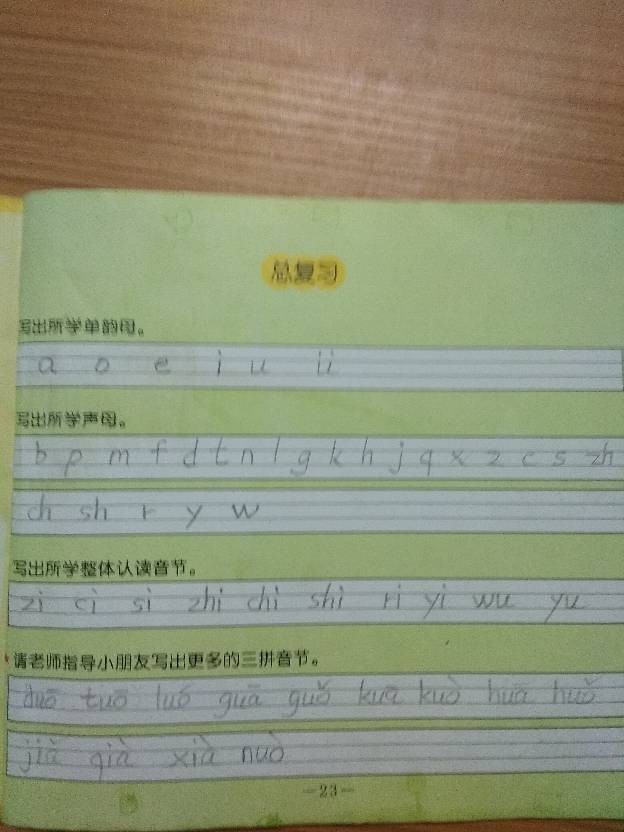 总复习
写出所学单韵母。
a o e i u ü
写出所学声母。
b p m f d t n l g k h j q x z c s zh
ch sh r y w
写出所学整体认读音节。
zi ci si zhi chi shi ri yi wu yu
请老师指导小朋友写出更多的三拼音节。
duō tuō luó guā guǒ kuā kuò huā huǒ
jiǎ qià xià nuò
—23—